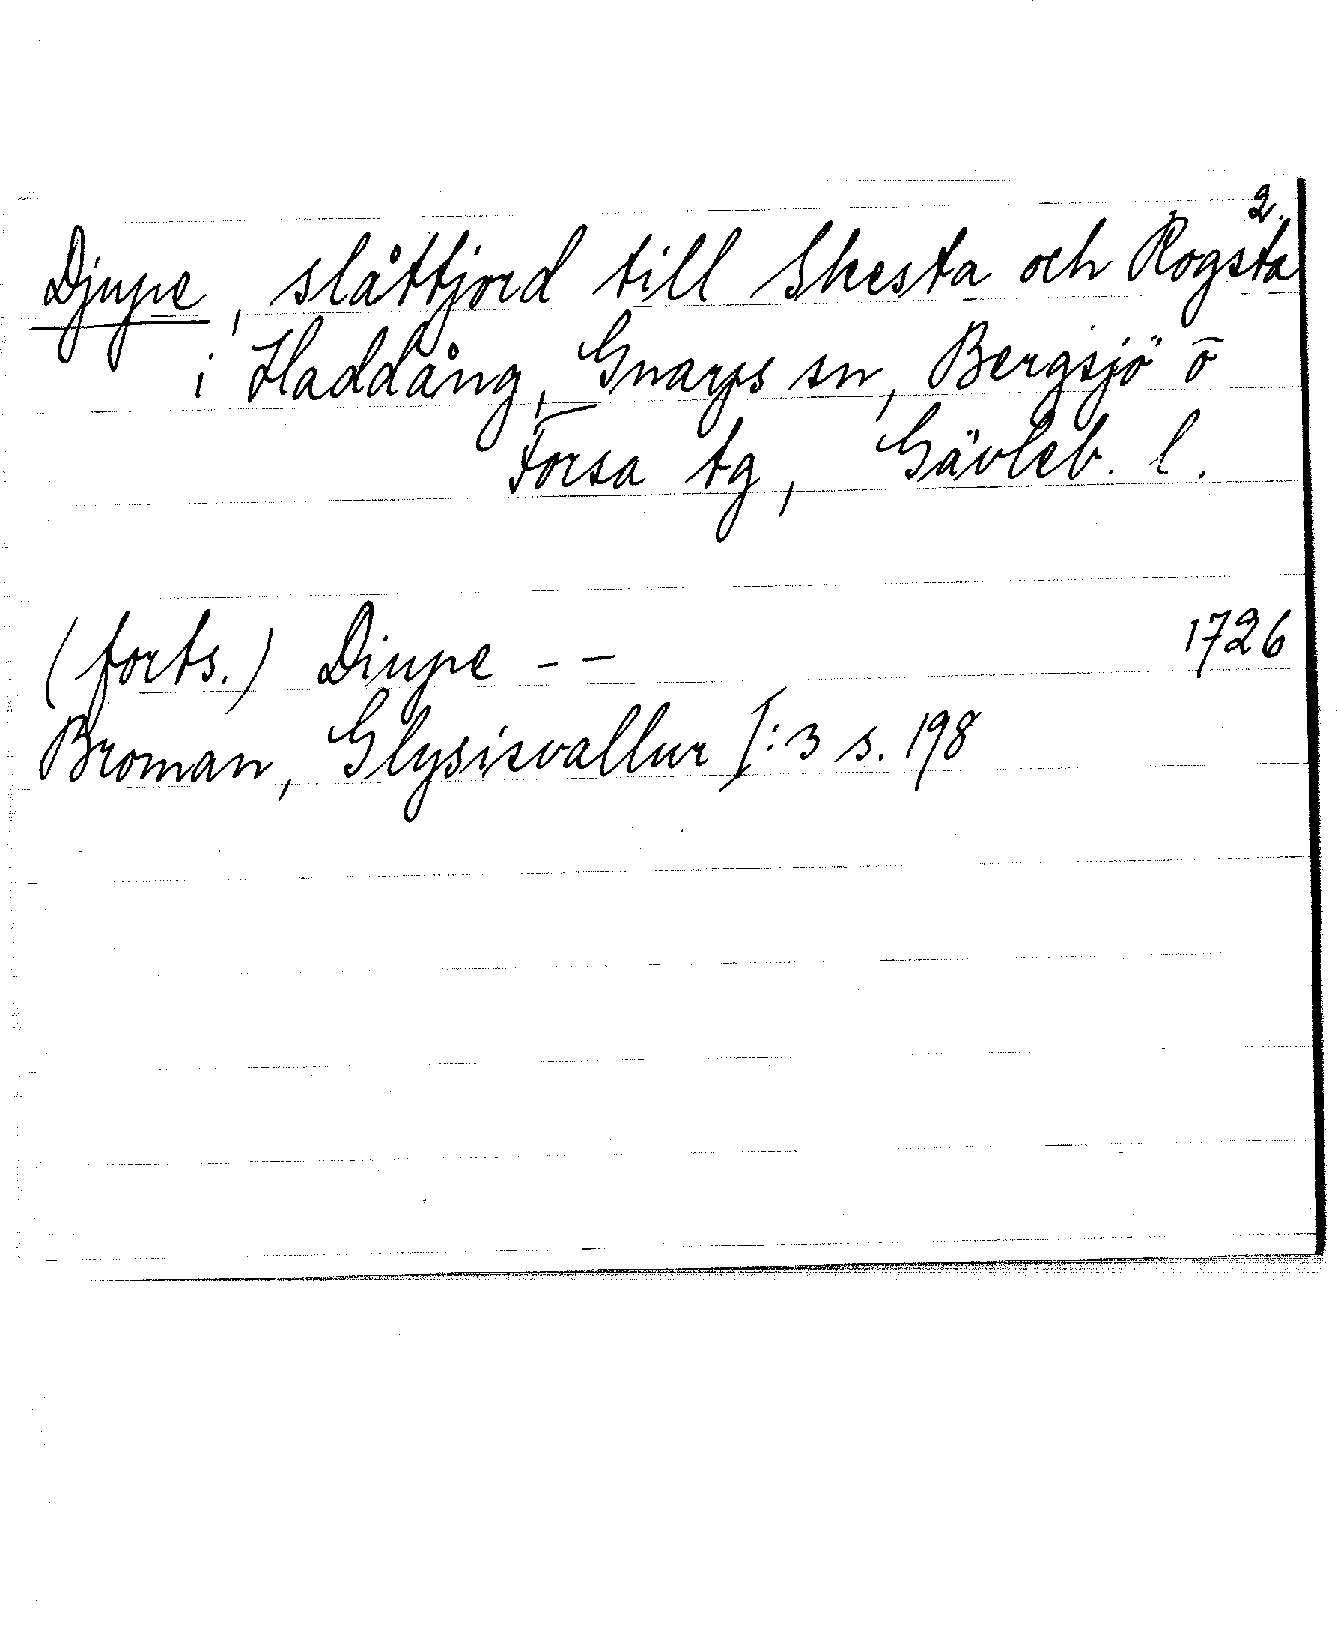 2.
Djupe, slåttjord till Skesta och Rogsta
i Haddång, Gnarps sn, Bergsjö o
Forsa tg, Gävleb. l.
(forts.) Diupe - -  1726
Broman, Glysisvallur I:3 s. 198